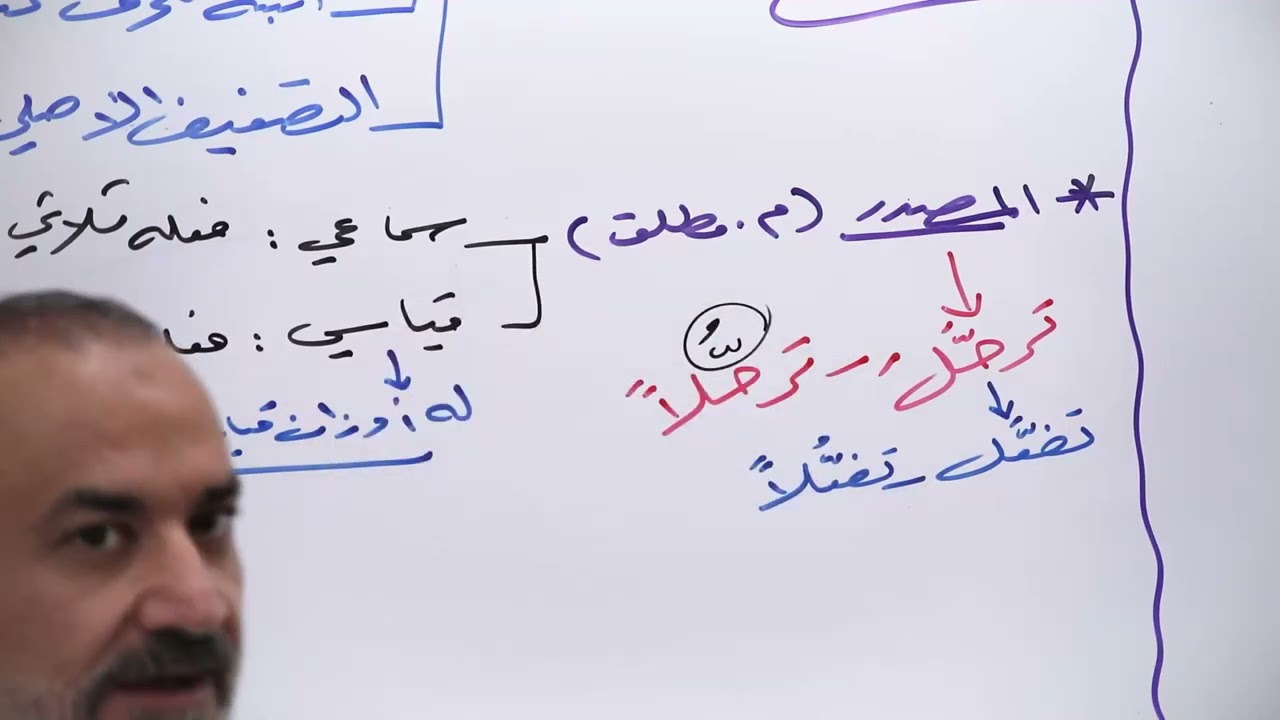 التصنيف الأصلي
* المصدر (م. مطلق)
سماعي : فعله ثلاثي
قياسي :
له أوزان
ترحّل -- ترحّلاً
تفعّل - تفعّلاً